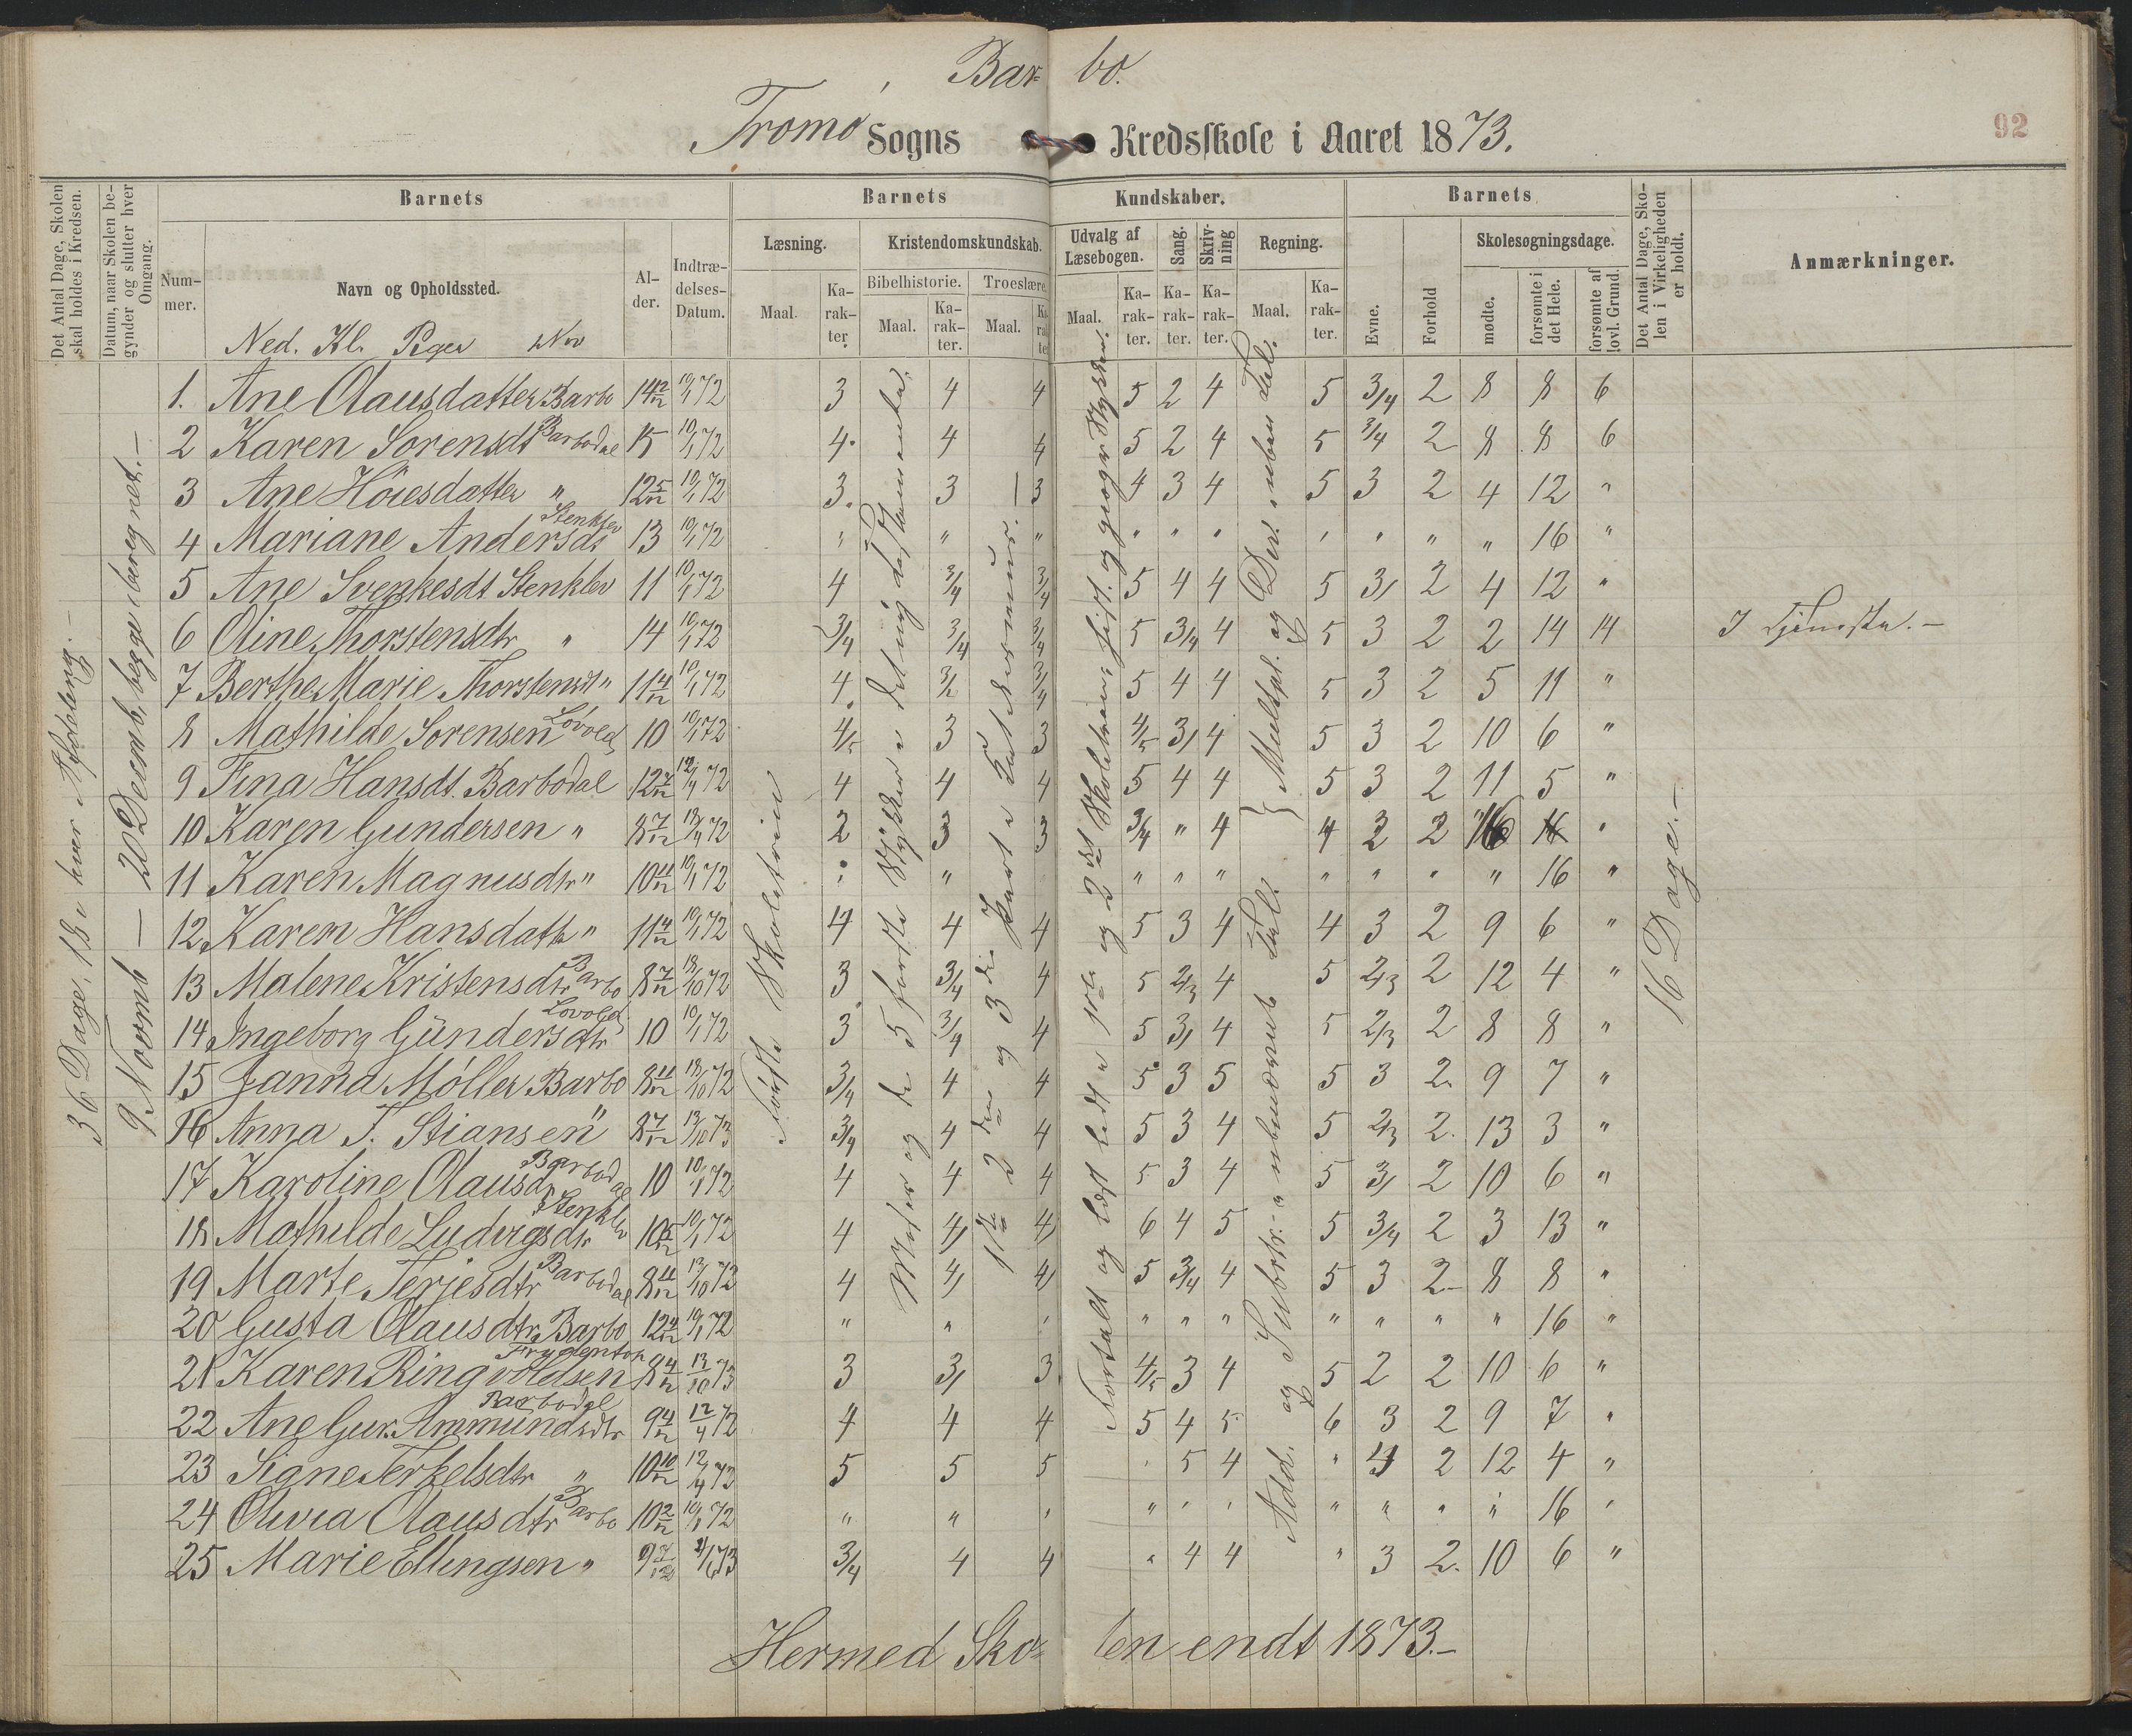 Bar= bo.
Tromø Sogns Kredsskole i Aaret 1873.
92
Det Antal Dage, Skolen skal holdes i Kredsen.
Datum, naar Skolen begynder og slutter hver Omgang.
Barnets
Barnets Kundskaber.
Barnets
Det Antal Dage, Skolen i Virkeligheden er holdt.
Anmærkninger.
Nummer.
Navn og Opholdssted.
Alder.
Indtrædelses-Datum.
Læsning.
Kristendomskundskab.
Udvalg af Læsebogen.
Sang.
Skrivning
Regning.
Evne.
Forhold
Skolesøgningsdage.
Bibelhistorie.
Troeslære.
Maal.
Karakter.
Maal.
Karakter.
Maal.
Karakter
Maal.
Karakter.
Karakter.
Karakter.
Maal.
Karakter.
mødte.
forsømte i det Hele.
forsømte af lovl. Grund.
Ned. Kl. Piger
36 Dage, 18 i hver Afdeling.-
9. Novemb - 20 Decemb, begge iberegnet.-
Første Skoletrin
1ste 2den og 3die Part i Katekismus.
Fortalt og læst lidt i 1ste og 2det Skoletrin, hist. og geogr. Stykker.
Add. og Subtr. i ubenævnte Tal.
Multpl. og Div. i ubenævnte Tal.
16 Dage.-
1. Ane Olausdatter Barbo 14 2/12 10/1 72 3 4 4 5 2 4 5 3/4 2 8 8 6
2 Karen Sorensdt Barbodal 15 10/1 72 4 4 4 5 2 4 5 3/4 2 8 8 6
3 Ane Höiesdatter " 12 5/12 10/1 72 3 3 3 4 3 4 5 3 2 4 12 "
4 Mariane Andersdt Stenklev 13 10/1 72 " " " " " " " " " " 16 "
5 Ane Svenkesdt Stenklev 11 10/1 72 4 3/4 3/4 5 4 4 5 3/ 2 4 12 "
6 Oline Thorstensdtr " 14 10/1 72 3/4 3/4 3/4 5 3/4 4 5 3 2 2 14 14 I Tjeneste.-
7 Berthe Marie Thorstensdt " 11 4/12 10/1 72 4 3/ 3/4 5 4 4 5 3 2 5 11 "
8 Mathilde Sorensen Lovold 10 10/1 72 4/5 3 3 4/5 3/ 4 5 3 2 10 6 "
9 Tina Hansdt. Barbodal 12 7/12 12/4 72 4 4 4 5 4 4 5 3 2 11 5 "
10 Karen Gundersen " 8 7/12 13/4 72 2 3 3 3/4 " 4 4 2 2 16 "
11 Karen Magnusdtr " 10 11/12 10/1 72 " " " " " " " " " 16 "
12 Karen Hansdatter " 11 4/12 10/1 72 4 4 4 5 3 4 4 3 2 9 6 "
13 Malene Kristensdtr Barbo 8 7/12 18/10 72 3 3/4 4 5 2/3 4 5 2/3 2 12 4 "
14 Ingeborg Gündersdtr Lovold 10 10/1 72 3 3/4 4 5 3/ 4 5 2/3 2 8 8 "
15 Janna Møller Barbo 8 11/12 18/10 72 3/4 4 4 5 3 5 5 3 2. 9 7 "
16 Anna T. Stiansen " 8 7/12 13/10 73 3/4 4 4 5 3 4 5 2/3 2. 13 3 "
17 Karoline Olausdt Barbodal 10 10/1 72 4 4 4 5 3 4 5 3/ 2 10 6 "
18 Mathilde Ludvigsdtr Stenklev 10 5/12 10/1 72 4 4/ 4/ 6 4 5 5 3/4 2 3 13 "
19 Marte Terjesdtr Barbodal 8 11/12 13/10 72 4 4/ 4/ 5 3/4 4 5 3 2- 8 8 "
20 Gusta Olausdtr Barbo 12 4/12 10/1 72 " " " " " " " " " " 16 "
21 Karen Ringvoldsen Frydentop 8 4/12 13/10 73 3 3/ 3 4/5 3 4 5 2 2 10 6 "
22 Ane Gur. Ammundsdtr Barbodal 9 4/12 12/4 72 4 4 4 5 4 5 6 3 2 9 7 "
23 Signe Terkelsdtr " 10 10/12 12/4 73 5 5 5 " 5 4 " 4 2 12 4 "
24 Olivia Olausdtr Barbo 10 2/12 10/1 72 " " " " " " " " " " 16 "
25 Marie Ellingsen " 9 7/12 73 3/4 4 4 " 4 4 " 3 2. 10 6 "
Hermed Sko= len endt 1873.-